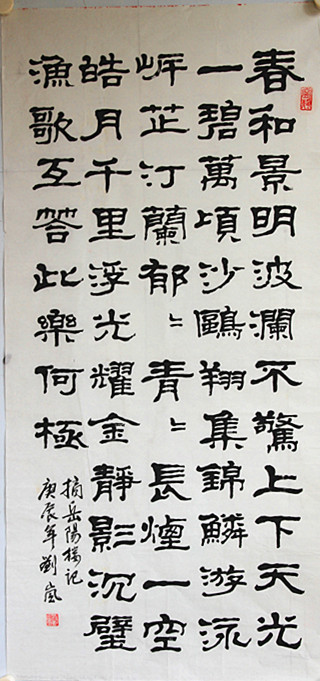 春和景明波瀾不驚上下天光
一碧萬頃沙鷗翔集錦鱗游泳
岸芷汀蘭郁〻青〻長煙一空
皓月千里浮光耀金靜影沉璧
漁歌互答此樂何極
摘岳陽樓記
庚辰年劉嵐